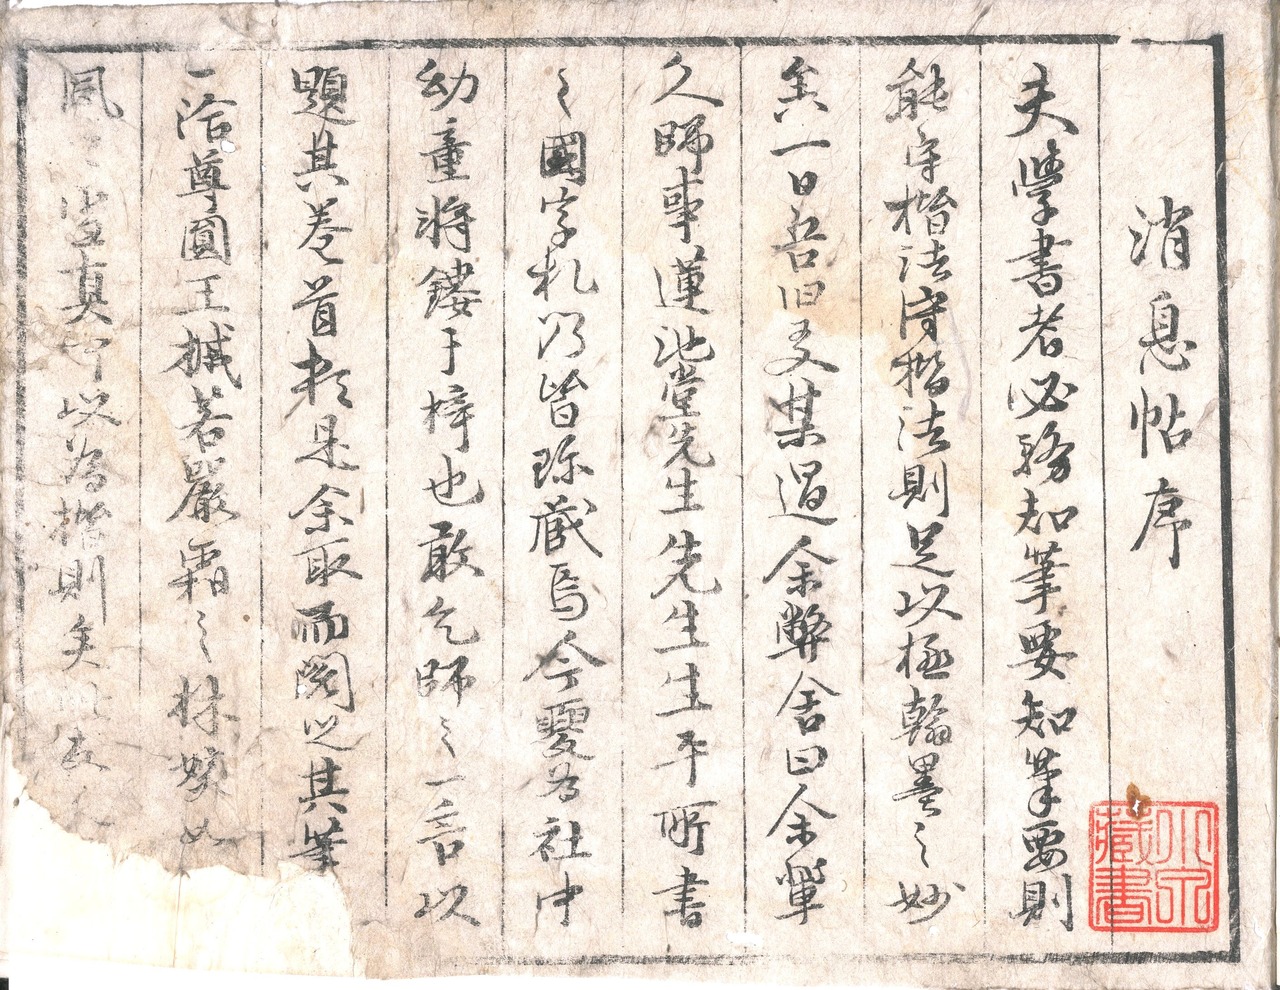 消息帖序
夫學書者必務知筆要知筆要則
能守楷法守楷法則足以極翰墨之妙
矣一日吾旧友某過余弊舍曰余輩
久師事蓮池堂先生先生生平所書
之國字札乃皆珎藏焉今要為社中
幼童将鏤于梓也敢乞師之一言以
題其巻首於是余取而閲之其筆
一治尊圓王搣若嚴霜之林嫰如
風之 真 以為楷則矣 友人
小山藏書